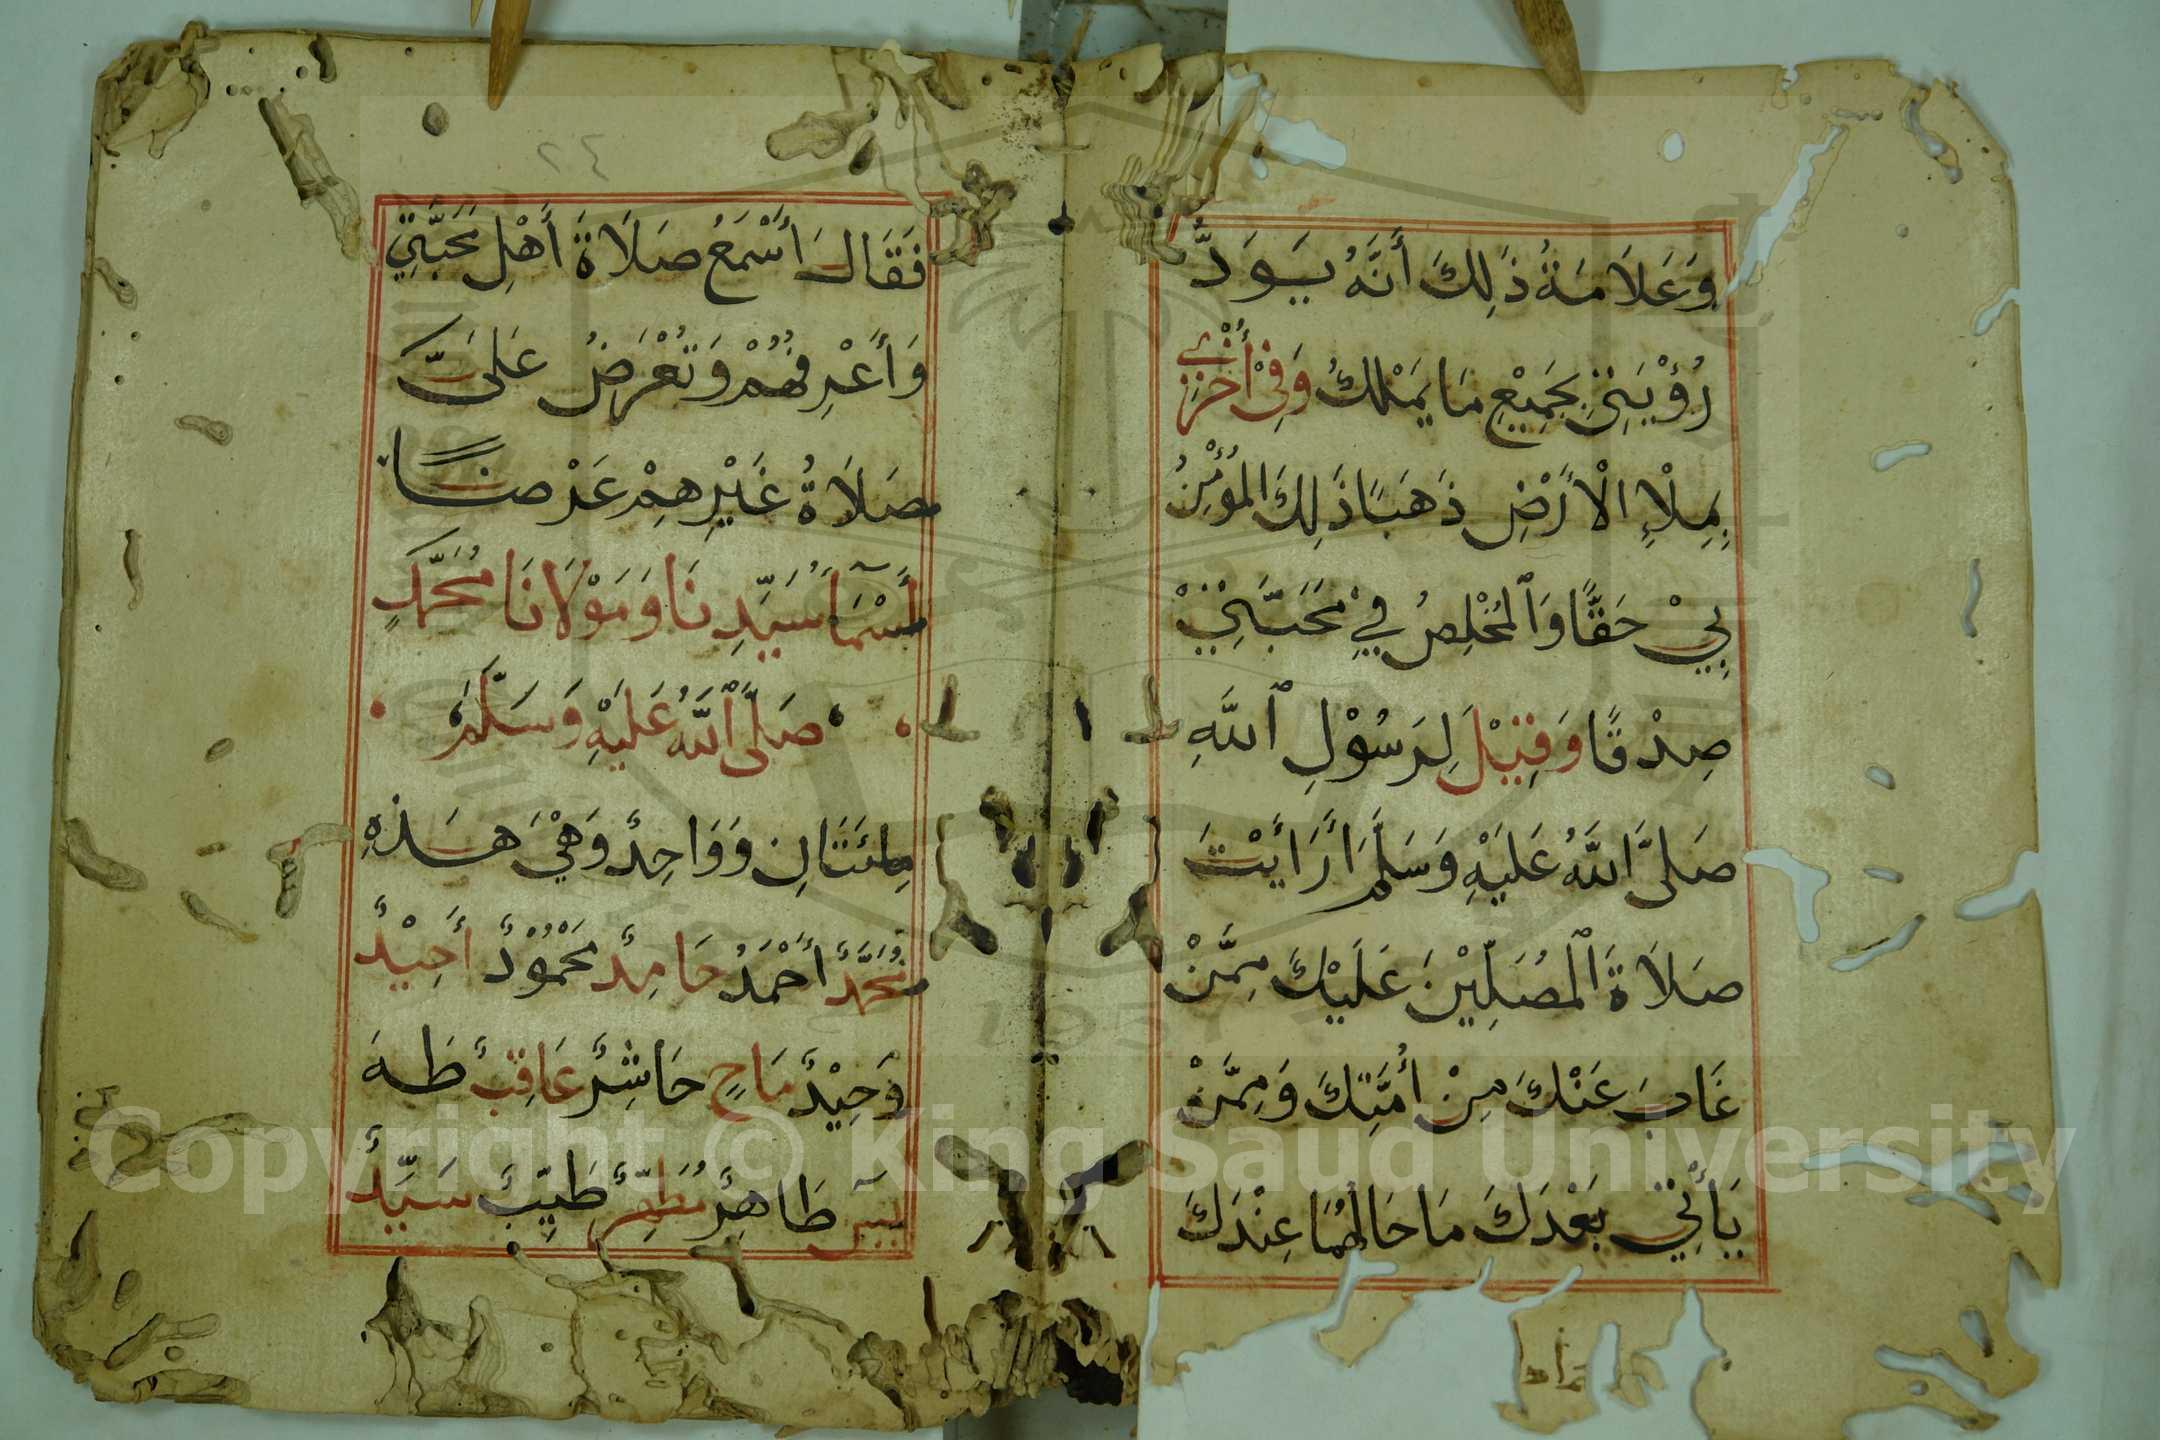 وَعَلَامَةُ ذَلِكَ أَنَّهُ يَوَدُّ
رُؤْيَتِيْ بِجَمِيْعِ مَا يَمْلِكُ وَفِيْ أُخْرَيْ
بِمِلْإِ الْأَرْضِ ذَهَبًا ذَلِكَ الْمُؤْمِنُ
بِيْ حَقًّا وَالْمُخْلِصُ فِيْ مَحَبَّتِيْ
صِدْقًا وَقِيْلَ لِرَسُوْلِ اللَّهِ
صَلَّى اللَّهُ عَلَيْهِ وَسَلَّمَ أَرَأَيْتَ
صَلَاةَ الْمُصَلِّيْنَ عَلَيْكَ مِمَّنْ
غَابَ عَنْكَ مِنْ أُمَّتِكَ وَمِمَّنْ
يَأْتِيْ بَعْدَكَ مَا حَالُهُمَا عِنْدَكَ
٢٤
فَقَالَ أَسْمَعُ صَلَاةَ أَهْلِ مَحَبَّتِيْ
وَأَعْرِفُهُمْ وَتُعْرَضُ عَلَىَّ
صَلَاةُ غَيْرِهِمْ عَرْضًا
أَسْمَآءُ سَيِّدِنَا وَمَوْلَانَا مُحَمَّدٍ
صَلَّى اللَّهُ عَلَيْهِ وَسَلَّمَ
مِائَتَانِ وَوَاحِدٌ وَهْيَ هَذِهِ
مُحَمَّدٌ أَحْمَدُ حَامِدٌ مَحْمُوْدٌ أَحِيْدٌ
وَحِيْدٌ مَاحٍ حَاشِرٌ عَاقِبٌ طَهَ
يسٓ طَاهِرٌ مُطَهَّرٌ طَيِّبٌ سَيِّدٌ
Copyright © King Saud University
1957